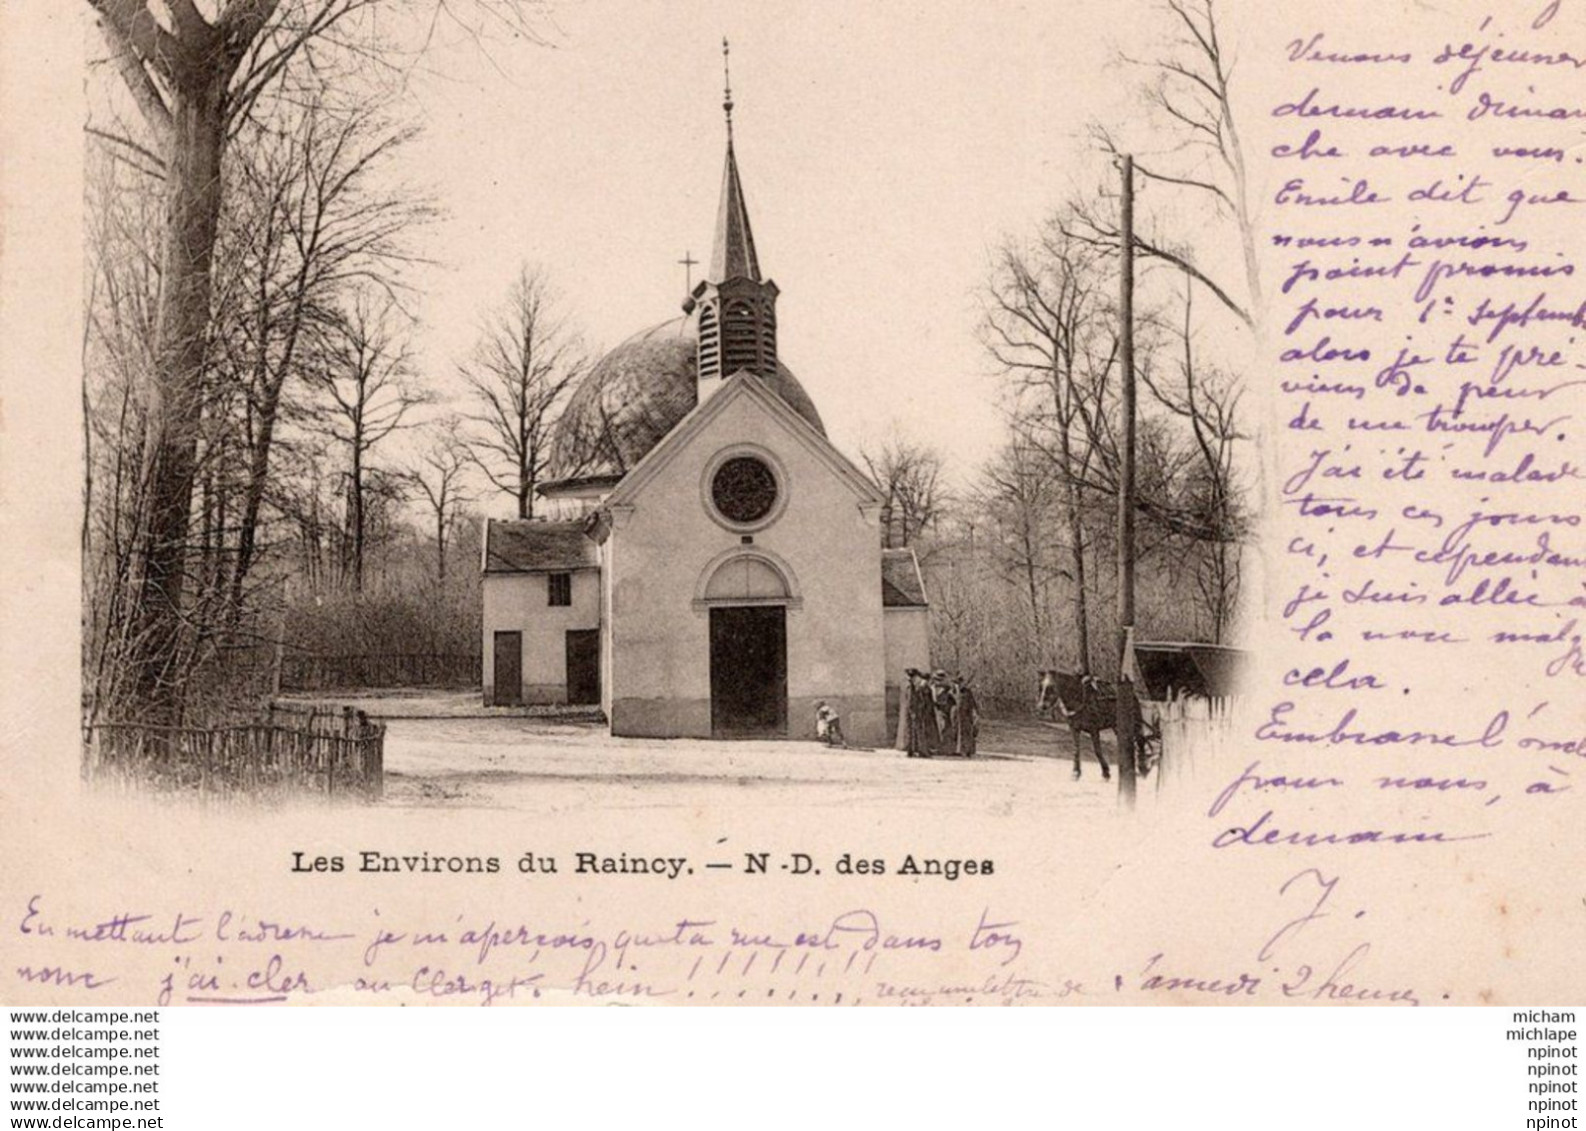 Venons déjeuner
demain diman
che avec vous.
Emile dit que
nous n'avions
point promis
pour 1er septemb
alors je te pré-
viens de peur
de me tromper.
J'ai été malade
tous ces jours
ci, et cependant
je suis allée à
la noce malgré
cela.
Embrasse l'oncle
pour nous, à
demain
J.
Les Environs du Raincy. — N.-D. des Anges
En mettant l'adresse je m'aperçois que ta rue est dans ton
nom j'ai cler au Clerget. hein !!!!!!!!
Samedi 2 heures.
www.delcampe.net
www.delcampe.net
www.delcampe.net
www.delcampe.net
www.delcampe.net
www.delcampe.net
www.delcampe.net
micham
michlape
npinot
npinot
npinot
npinot
npinot